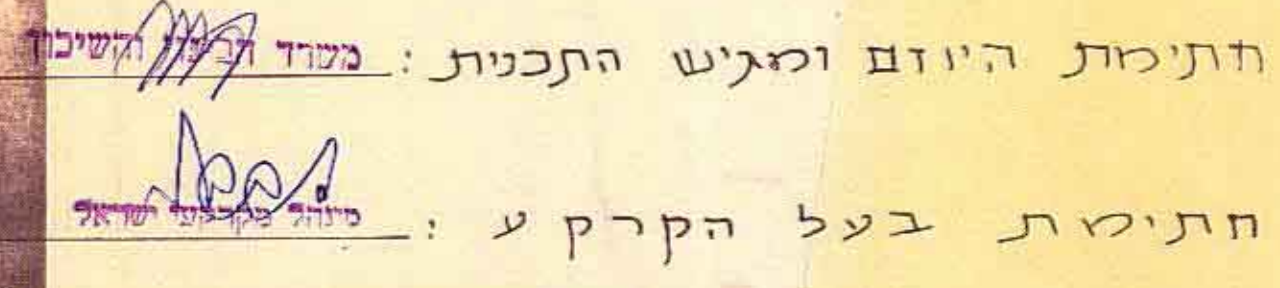 חתימת היוזם ומגיש התכנית : משרד הבינוי והשיכון
חתימת בעל הקרקע : מינהל מקרקעי ישראל